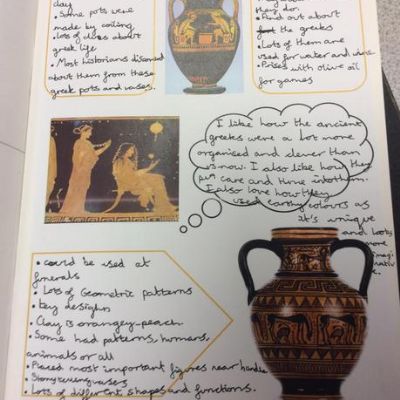 clay
• Some pots were
made by coiling
• Lots of clues about
greek life
• Most historians discovered
about them from these
greek pots and vases.
they do.
• Find out about
the greeks
• Lots of them are
used for water and wine
• Prizes with olive oil
for games
I like how the ancient
greeks were a lot more
organised and clever than
us now. I also like how they
put care and time into them.
I also love how they
used earthy colours as
it's unique
and looks
more
imagi
nativ
e.
• could be used at
funerals
• Lots of Geometric patterns
• key designs
• Clay is orangey-peach.
• Some had patterns, humans,
animals or all
• Placed most important figures near handle
• Story telling vases
• Lots of different shapes and functions.